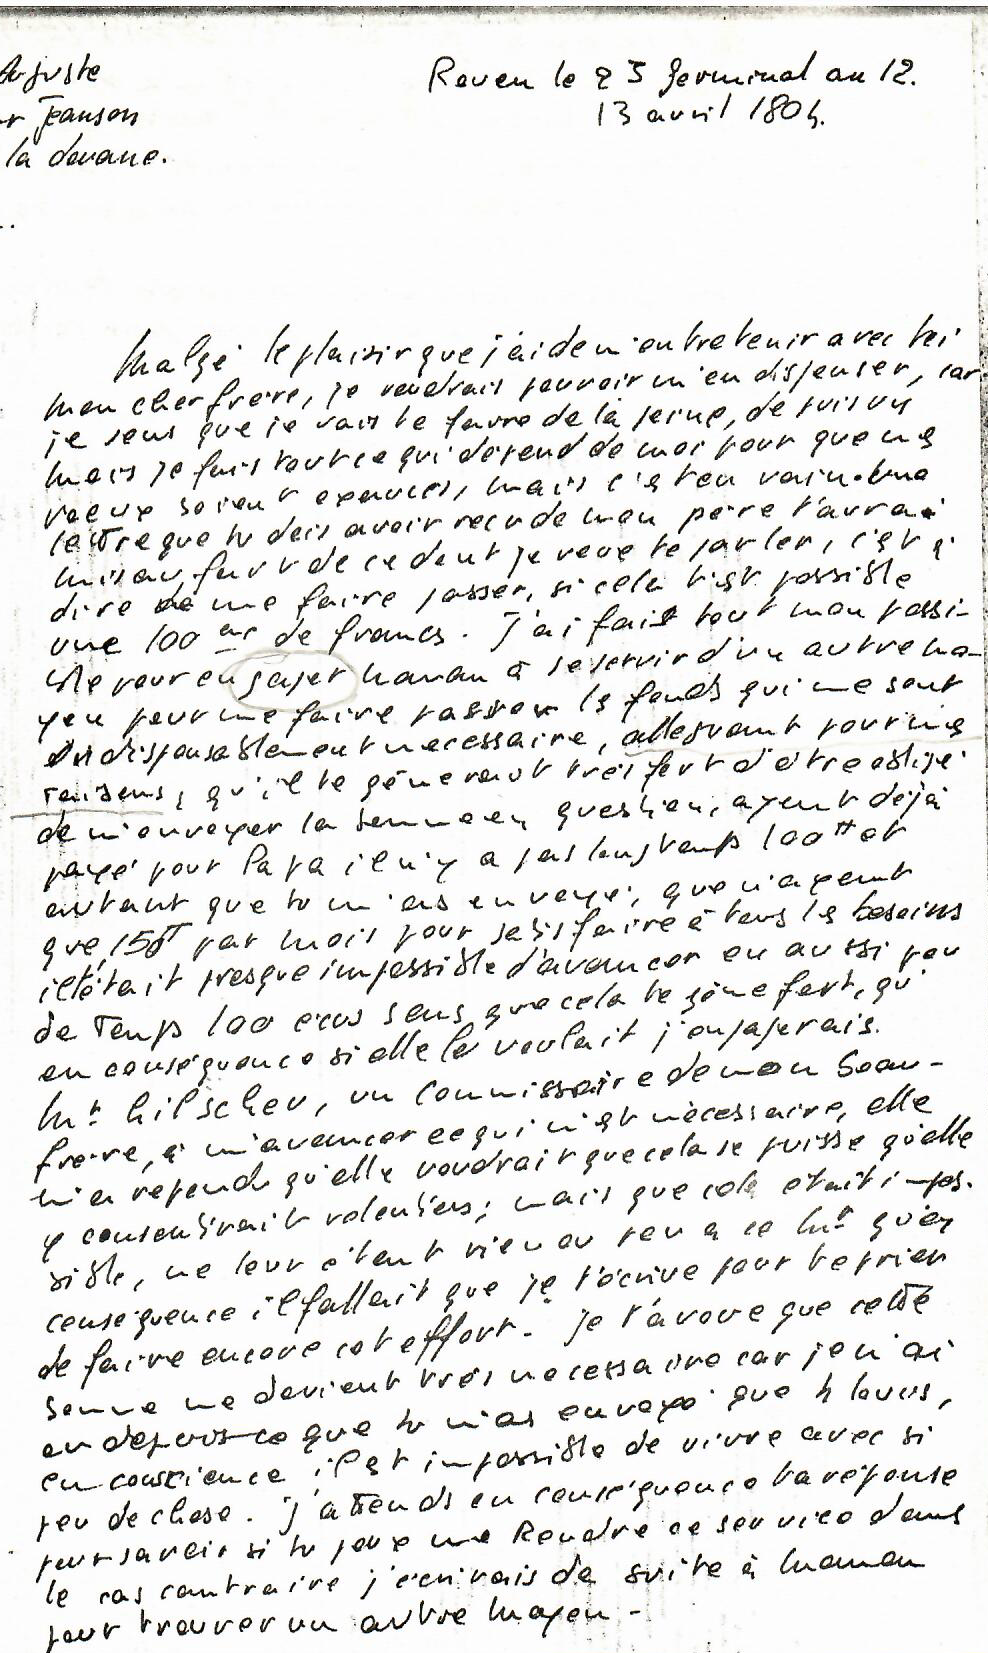 Auguste
Jeanson
la douane.
Rouen le 23 germinal an 12.
13 avril 1804.
Malgé le plaisir que j'ai de m'entretenir avec toi
mon cher frère, je voudrais pouvoir m'en dispenser, car
je sens que je vais te faire de la peine, depuis un
mois je fais tout ce qui dépend de moi pour que mes
voeux soient exaucés, mais c'est en vain. Une
lettre que tu dois avoir reçu de mon père t'aura
mis au fait de ce dont je veux te parler, c'est à
dire de me faire passer, si cela t'est possible
une 100 ne de francs. J'ai fait tout mon possi-
ble pour engager maman à se servir d'un autre mo-
yen pour me faire passer les fonds qui me sont
indispensablement necessaire, alleguant pour mes
raisons, qu'il te gêneroit très fort d'être obligé
de m'envoyer la somme en question, ayant déjà
payé pour Papa il n'y a pas longtemps 100 tt et
autant que tu m'as envoyé, que n'ayant
que 150 tt par mois pour satisfaire à tous les besoins
il était presque impossible d'avancer en aussi peu
de temps 100 écus sans que cela te gêne fort, qu'
en conséquence si elle le voulait j'engagerais
Mr. Hilscher, un commissaire de mon beau-
frère, à m'avancer ce qui m'est nécessaire, elle
m'a repondu qu'elle voudrait que cela se puisse qu'elle
y consentirait volontiers; mais que cela était impos-
sible, ne leur étant rien ou peu à ce Mr qu'en
conséquence il fallait que je t'écrive pour te prier
de faire encore cet effort. Je t'avoue que cette
somme me devient très necessaire car je n'ai
eu depuis ce que tu m'as envoyé que 4 louis,
en conscience il est impossible de vivre avec si
peu de chose. J'attends en conséquence ta réponse
pour savoir si tu peux me Rendre ce service dans
le cas contraire j'écrirais de suite à maman
pour trouver un autre moyen -